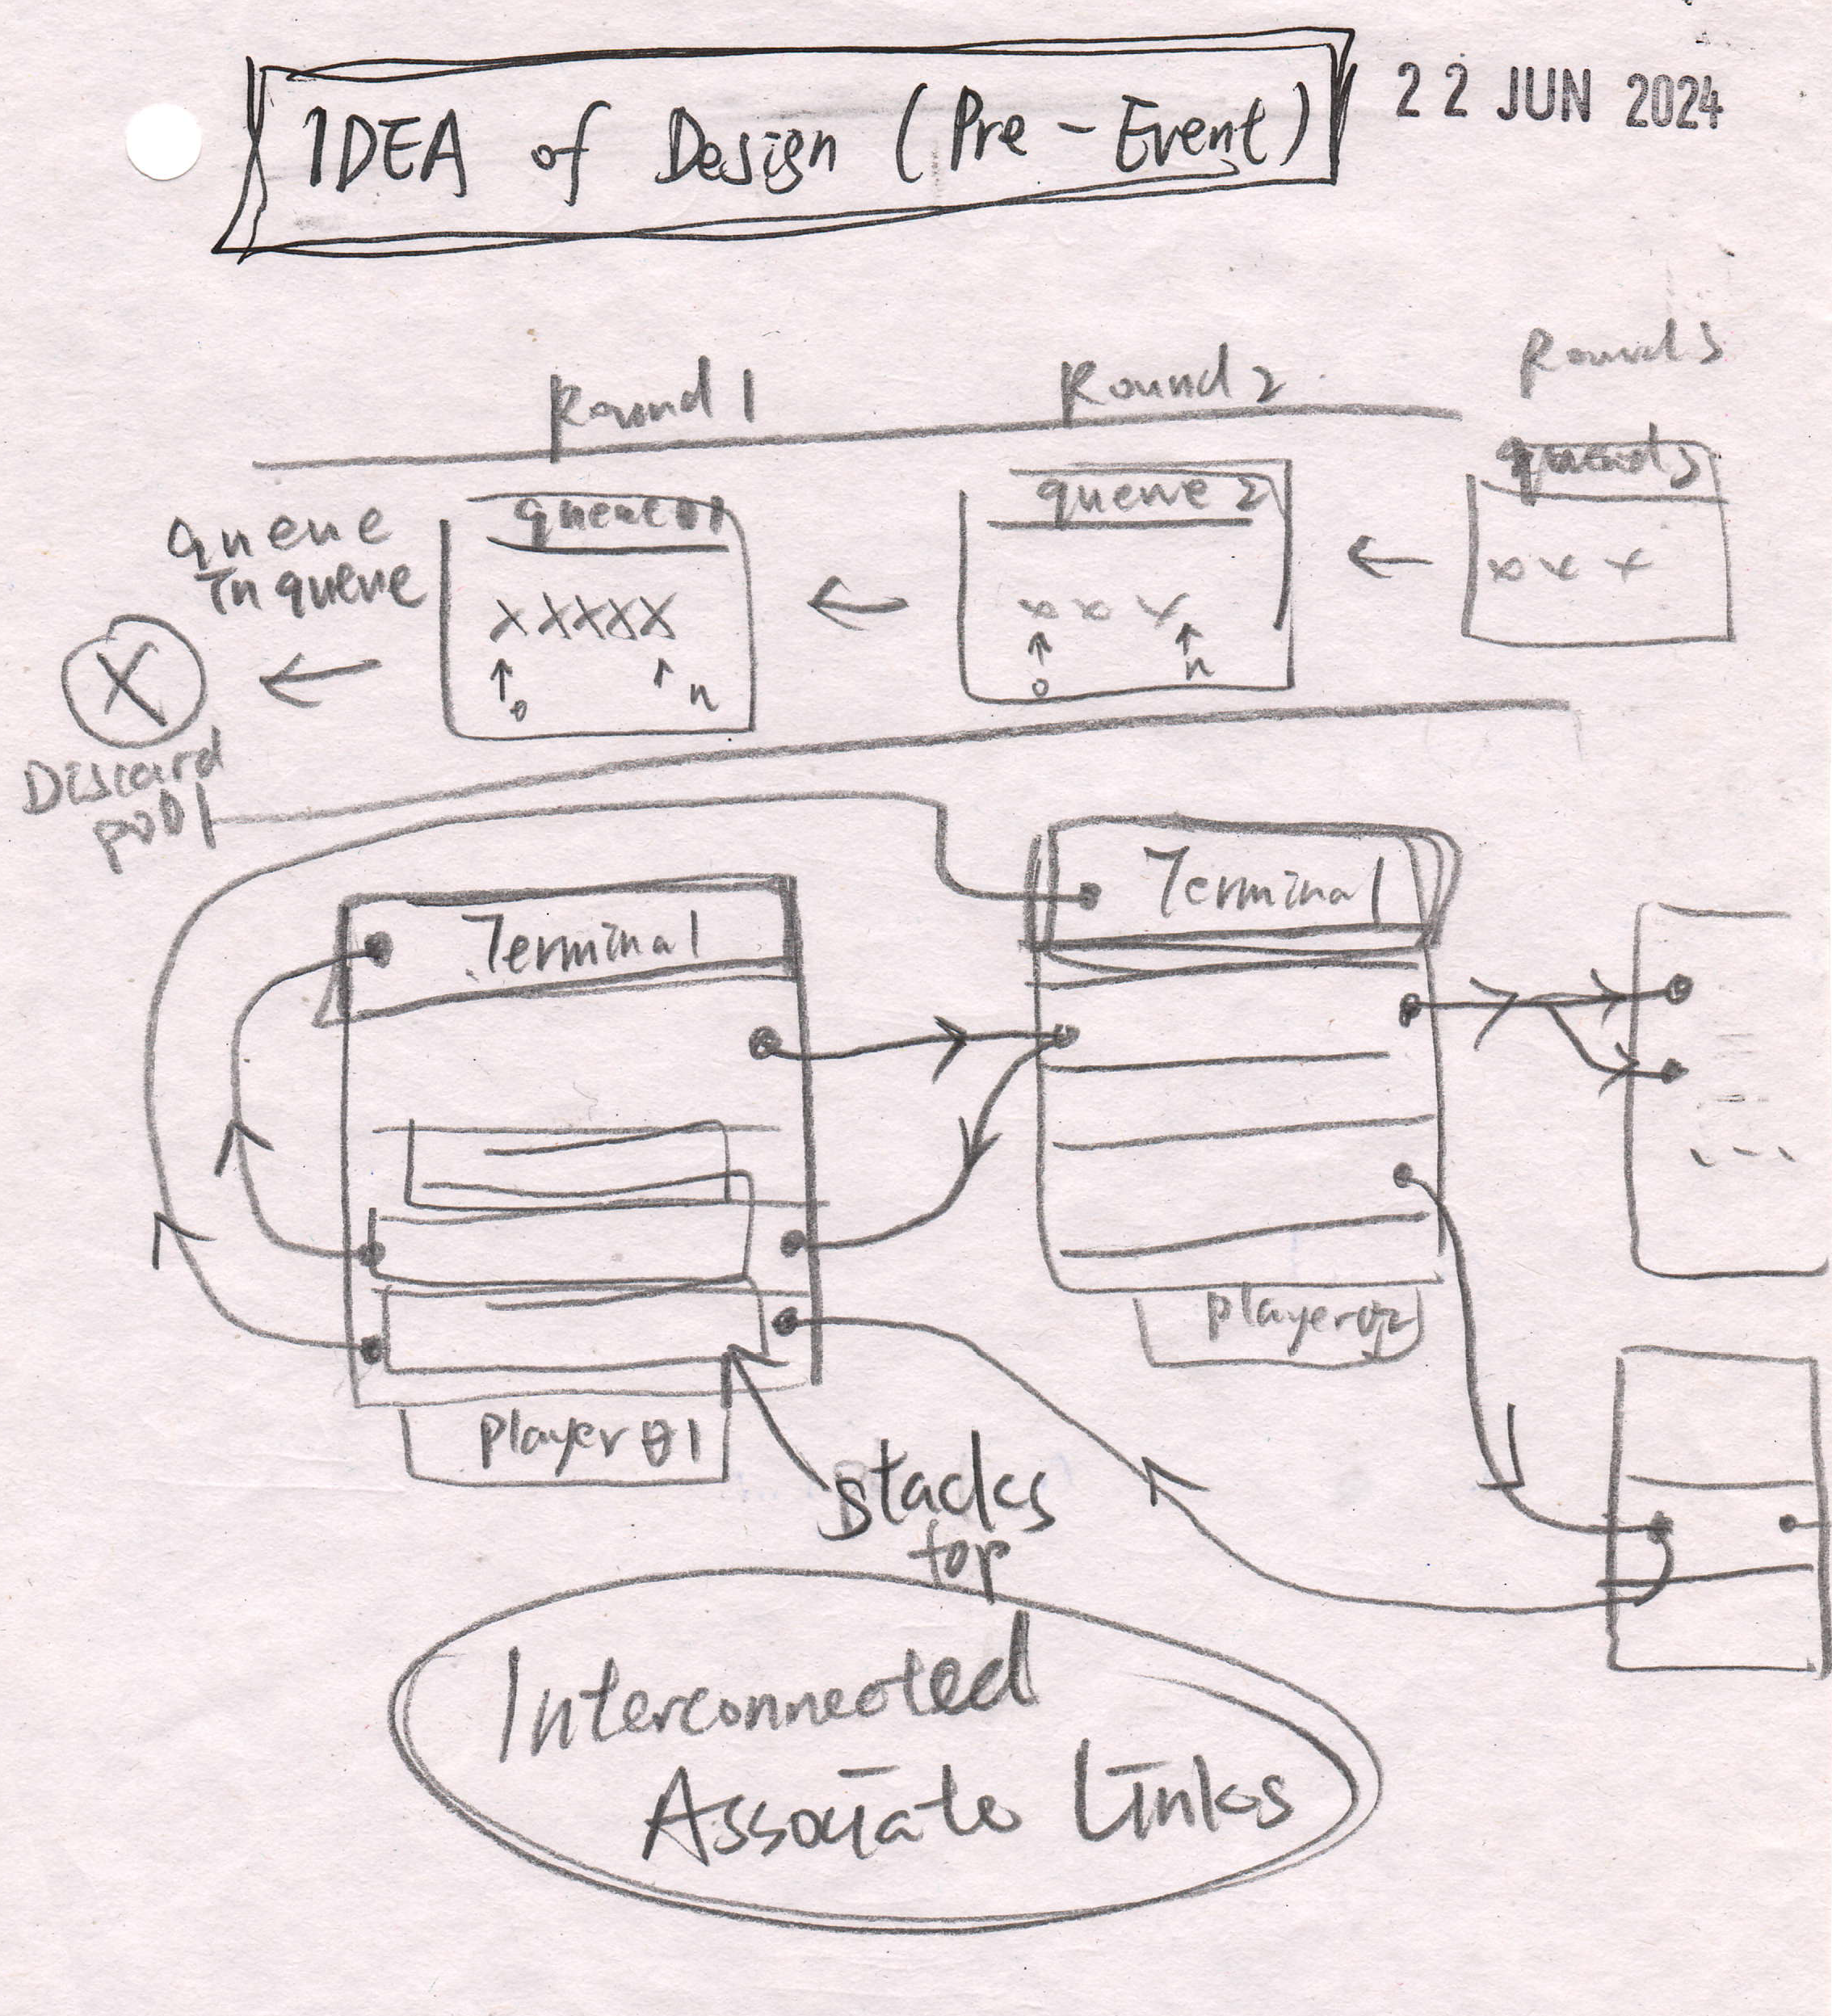 IDEA of Design (Pre-Event)
22 JUN 2024
Round 1
Round 2
Round 3
queue
in queue
queue 2
XXXXX
x x x
x x x
0
n
0
n
X
Discard
pool
Terminal
Terminal
...
player 02
player 01
stacks
top
Interconnected
Associate Links